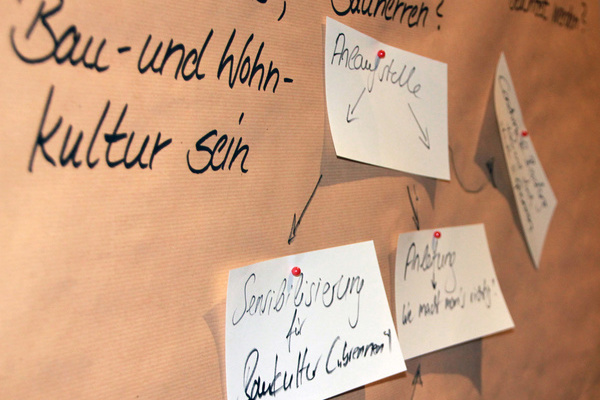 Bauherren?
Bau- und Wohn-
kultur sein
Anlaufstelle
Sensibilisierung
für
Baukultur
Anleitung
wie macht man's richtig?